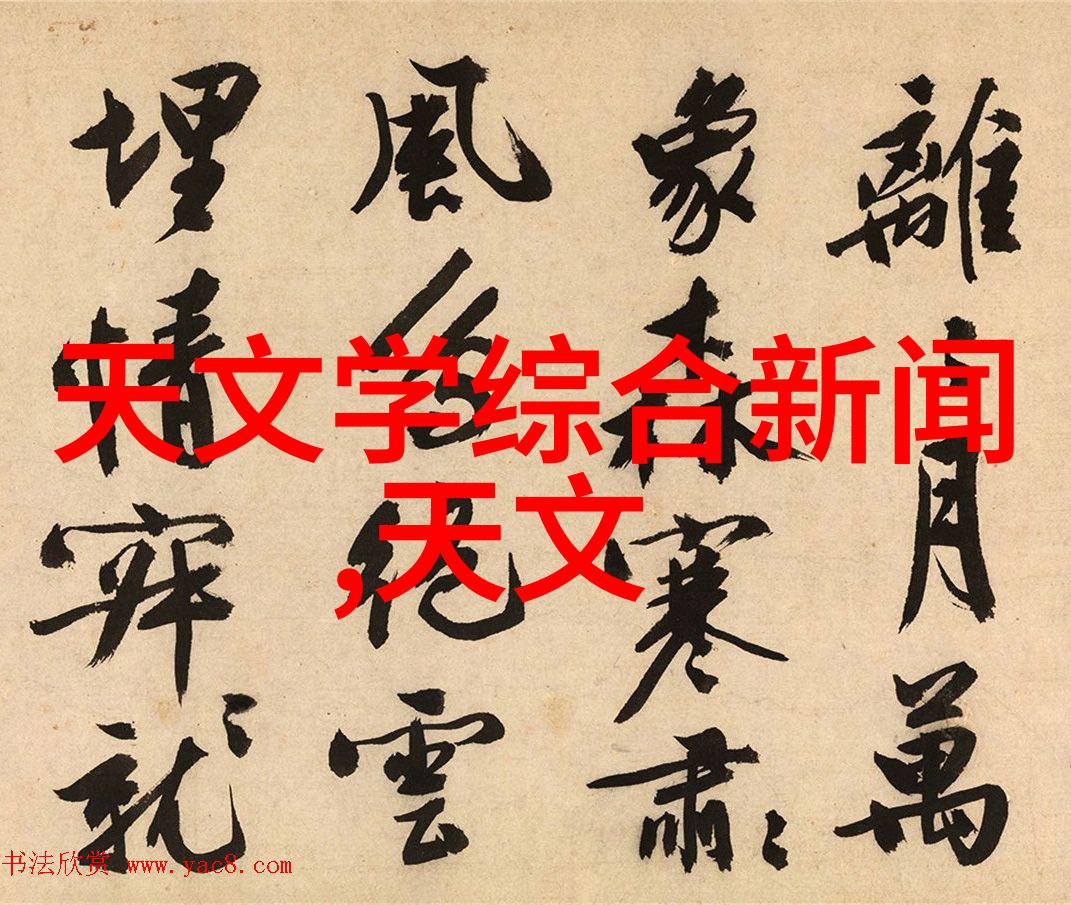 離月萬
象森寒肅
風絕雲
埋情就
天文学综合新闻
,天文
书法欣赏 www.yac8.com